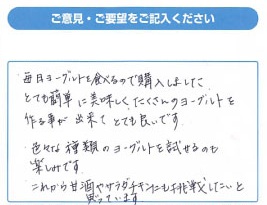 ご意見・ご要望をご記入ください
・毎日ヨーグルトを食べるので購入しました
とても簡単に美味しく、たくさんのヨーグルトを
作る事が出来てとても良いです
・色々な種類のヨーグルトを試せるのも
楽しみです
これから甘酒やサラダチキンにも挑戦したいと
思っています